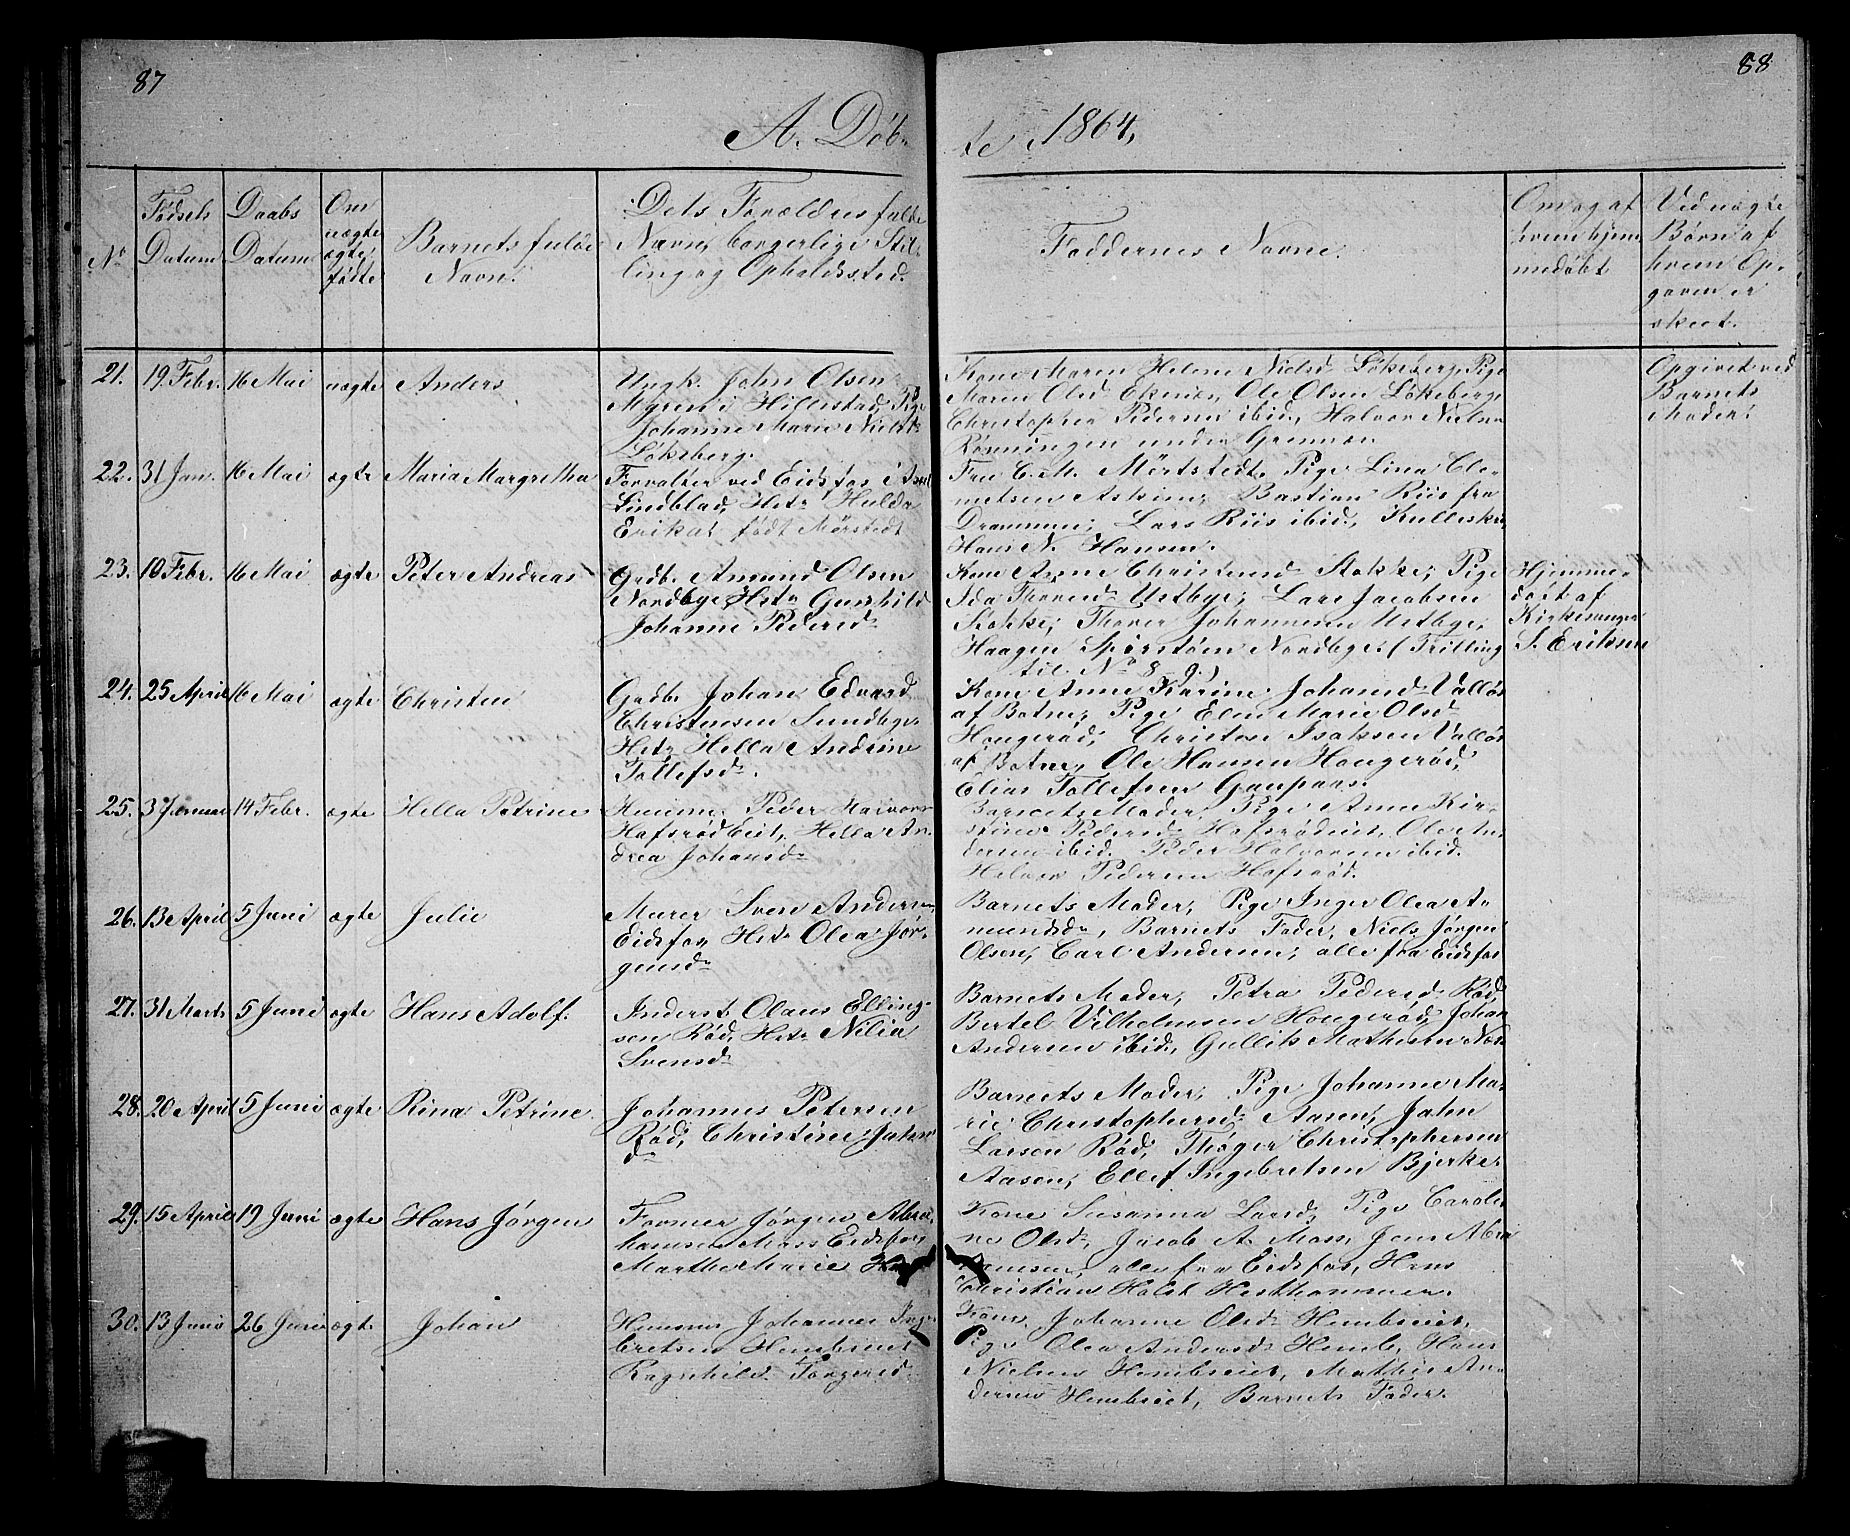 87
88
A. Døb-
te 1864,
No
Fødsels Datum
Daabs Datum
Om uægte ægte, fødte
Barnets fulde Navn.
Dets Forældres fulde
Navn, borgerlige Stil-
ling og Opholdssted.
Faddernes Navne.
Om og af
hvem hjem
medøbt
Ved uægte
Børn af
hvem Op-
gaven er
skeet.
21. 19 Febr. 16 Mai uægte Anders
Ungk. John Olsen
Myren i Hillestad, Pige
Johanne Marie Nielsd.
Løkeberg.
Kone Maren Helene Nielsd Løkeberg, Pige
Maren Olsd Ekenæs, Ole Olsen Løkeberg,
Christopher Pedersen ibid, Halvor Nielsen
Rønningen under Grennæs.
Opgivet ved
Barnets
Moder.
22. 31 Jan. 16 Mai ægte Maria Margretha
Forvalter ved Eidsfos i
Lindblad, Hst. Hulda
Erika, født Mørstedt
Fru C. M. Mörtstedt, Pige Lina Cle-
metsen Askim, Bastian Riis fra
Drammen, Lars Riis ibid.,
Hans N. Hansen.
23. 10 Febr. 16 Mai ægte Peter Andreas
Grdb. Amund Olsen
Nordbye, Hst. Gunhild
Johanne Pedersd.
Kone Anne Christensd Stokke, Pige
Ida Thorsd Uetbye, Lars Jacobsen
Stokke, Thorer Johannesen Uetbye,
Haagen Sperstøen Nordbye. (Trilling
til No 8 9.)
Hjemme-
døbt af
Kirkesanger
S. Eriksen
24. 25 April 16 Mai ægte Christen
Grdb. Johan Edvard
Christensen Sundbye,
Hst. Hella Andrine
Tollefsd.
Kone Anne Karine Johansd Valløs
af Botne, Pige Elen Marie Olsd
Hougerød, Christen Isaksen Valløs
af Botne, Ole Hansen Hougerød,
Elias Tollefsen Gaupaas.
25. 3 Januar 14 Febr. ægte Hella Petrine
Huusm. Peder Halvors.
Hafsrødeiet, Hella An-
drea Johansd.
Barnets Moder, Pige Anne Kir-
stine Pedersd Hafsrødeiet, Ole An-
dersen ibid. Peder Halvorsen ibid.
Helvor Pedersen Hafsrød.
26. 13 April 5 Juni ægte Julie
Murer Sven Andersen
Eidsfos, Hst. Olea Jør-
gensd.
Barnets Moder, Pige Inger Olea A-
mundsd., Barnets Fader, Niels Jørgen
Olsen, Carl Andersen, alle fra Eidsfos
27. 31 Marts 5 Juni ægte Hans Adolf.
Inderst Olaus Elling-
sen Rød, Hst. Nilia
Svensd.
Barnets Moder, Petra Pedersd Rød,
Bertel Vilhelmsen Hougerød, Johan
Andersen ibid., Gullik Mathisen Næs
28. 20 April 5 Juni ægte Rina Petrine
Johannes Petersen
Rød, Christine Johns
d.
Barnets Moder, Pige Johanne Ma-
rie Christophersd Aasen, John
Larsen Rød, Thøger Christophersen
Aasen, Ellef Ingebretsen Bjerke.
29. 15 April 19 Juni ægte Hans Jørgen
Former Jørgen Abra-
hamsen Moss Eidsfos,
Marthe Marie
Kone Susanna Larsd, Pige Caroli-
ne Olsd, Jacob A. Moss, Jens Abra
hamsen, alle fra Eidsfos, Hans
Christian Holst Hestehammer.
30. 13 Juni 26 Juni ægte Johan
Huusm. Johannes Inge-
bretsen Hembseiet
Ragnhild Torgersd.
Kone Johanne Olsd Hembseiet,
Pige Olea Andersd Hemb, Hans
Nielsen Hembseiet, Mathis An-
dersen Hembseiet, Barnets Fader.